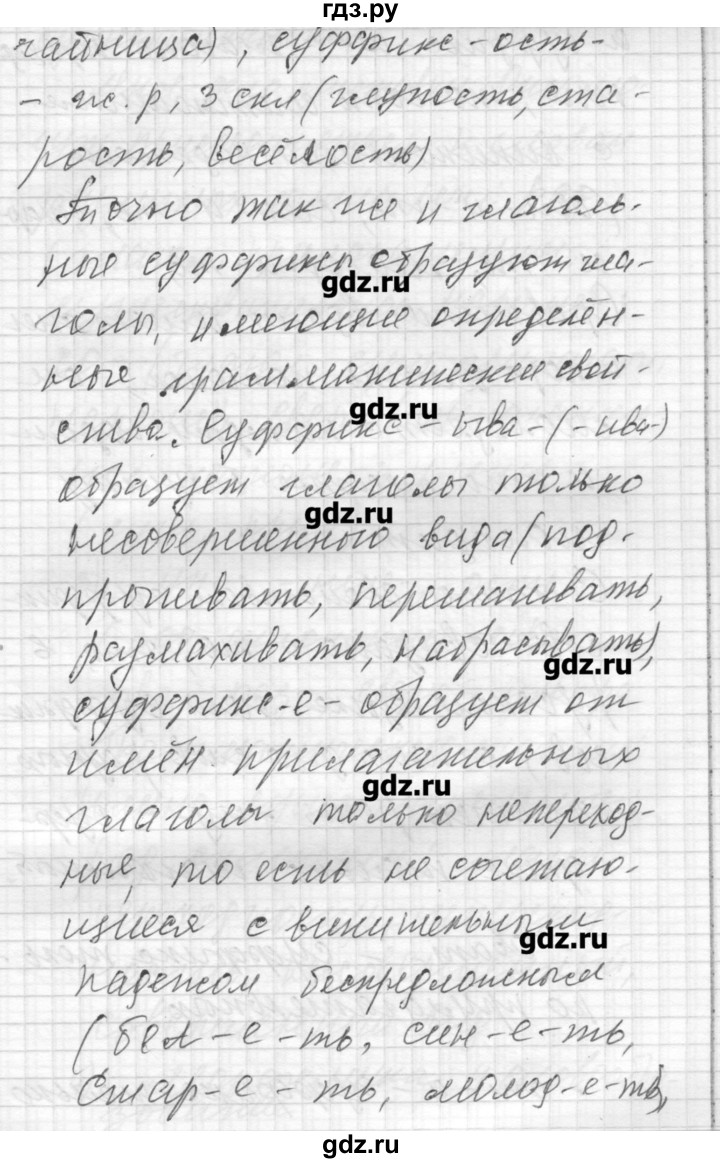 гдз.ру
чайница), суффикс -ость-
- ж.р, 3 скл (глупость, ста-
рость, весёлость)
Точно так же и глаголь-
ные суффиксы образуют гла-
gdz.ru
голы, имеющие определён-
ные грамматические свой-
gdz.ru
ства. Суффикс -ыва- (-ива-)
образует глаголы только
gdz.ru
несовершенного вида (под-
прыгивать, перешагивать,
размахивать, набрасывать),
gdz.ru
суффикс -е- образует от
имён прилагательных
gdz.ru
глаголы только непереход-
ные, то есть не сочетаю-
щиеся с винительным
gdz.ru
падежом беспредложным
(бел-е-ть, син-е-ть,
стар-е-ть, молод-е-ть),
gdz.ru